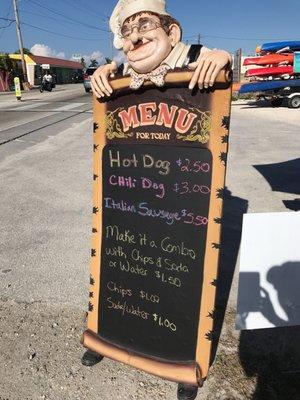 MENU
FOR TODAY
Hot Dog $2.50
CHili Dog $3.00
Italian Sausage $5.50
Make it a Combo
with Chips & Soda
or Water $1.50
Chips $1.00
Soda/water $1.00